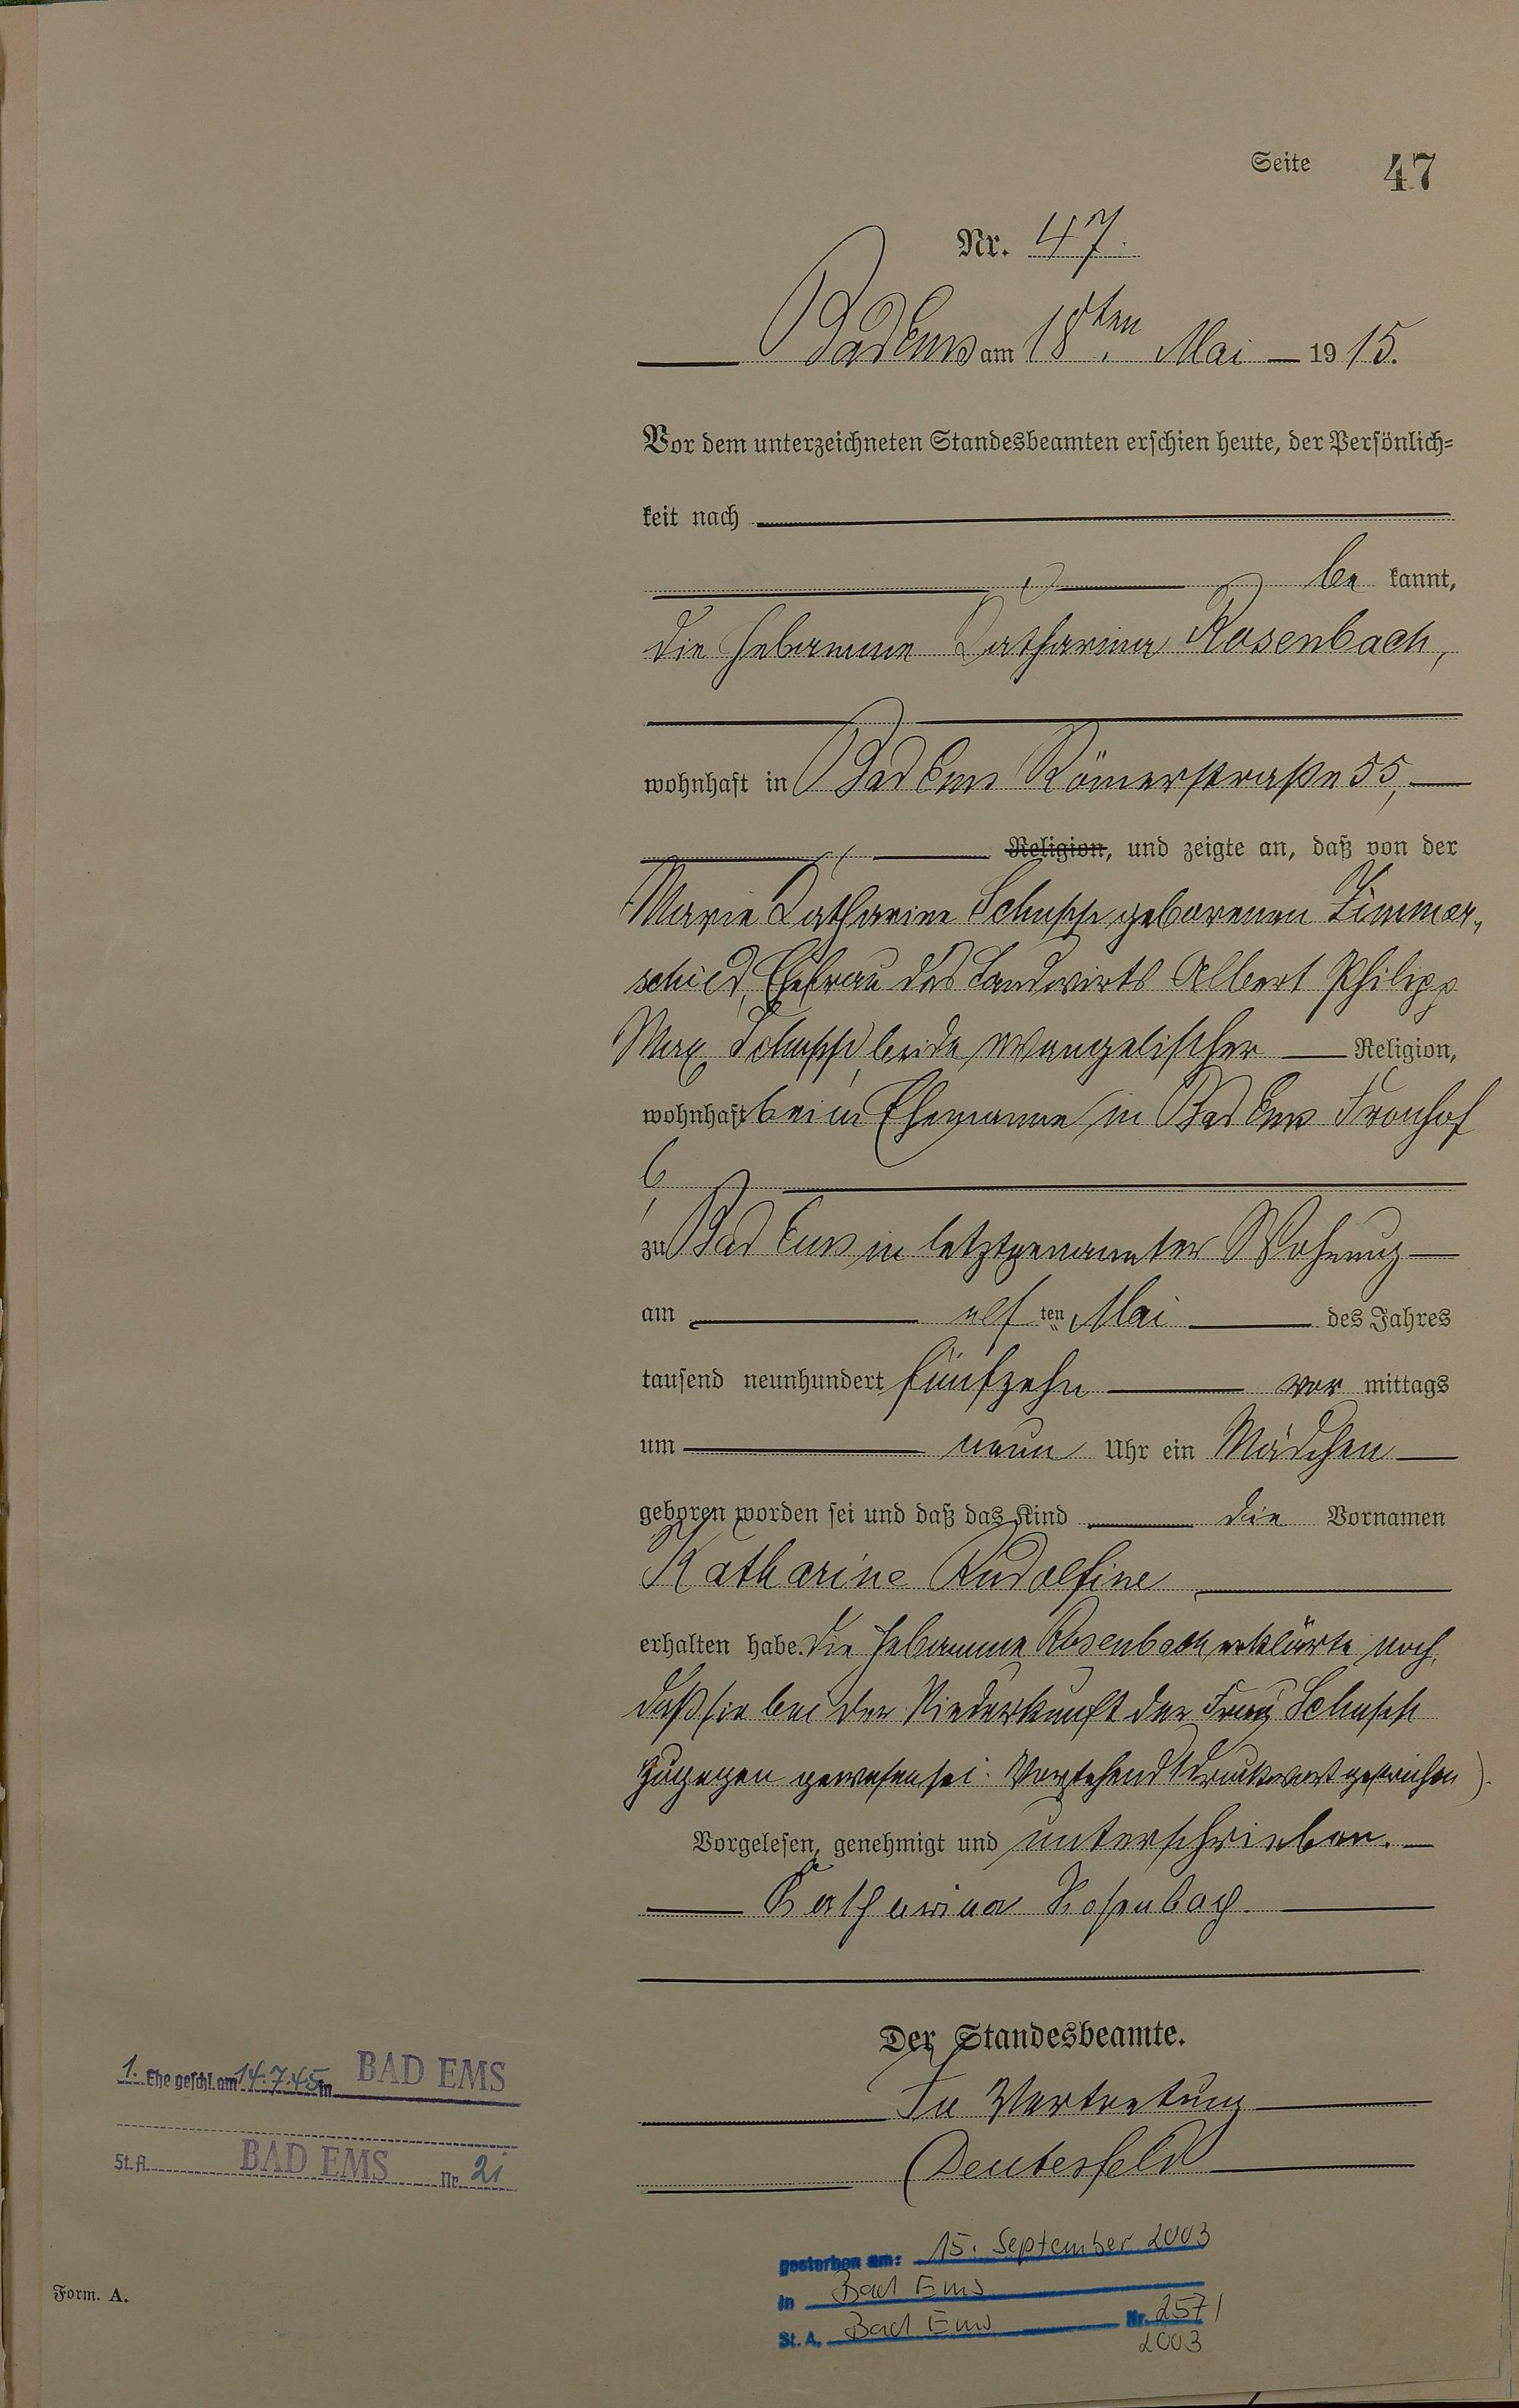 Seite 47
Nr. 47.
Bad Ems am 18ten Mai 1915.
Vor dem unterzeichneten Standesbeamten erschien heute, der Persönlich-
keit nach
be kannt,
die Hebamme Katharina Rosenbach,
wohnhaft in Bad Ems Römerstraße 55,
Religion, und zeigte an, daß von der
Marie Katharine Schupp geborenen Zimmer-
schied, Ehefrau des Landwirts Albert Philipp
Max Schupp, beide evangelischer Religion,
wohnhaft beim Ehemanne in Bad Ems Fronhof
6,
zu Bad Ems in letztgenannter Wohnung
am elf ten Mai des Jahres
tausend neunhundert fünfzehn vor mittags
um neun Uhr ein Mädchen
geboren worden sei und daß das Kind die Vornamen
Katharine Rudolfine
erhalten habe. Die Hebamme Rosenbach erklärte noch,
daß sie bei der Niederkunft der Frau Schupp
zugegen gewesen sei. Vorstehend 1 Druckwort gestrichen).
Vorgelesen, genehmigt und unterschrieben.
Katharina Rosenbach.
Der Standesbeamte.
In Vertretung
Deutesfeld
1. Ehe geschl. am 14.7.45 in BAD EMS
St. A. BAD EMS Nr. 21
gestorben am: 15. September 2003
in Bad Ems
St. A. Bad Ems Nr. 257/
2003
Form. A.